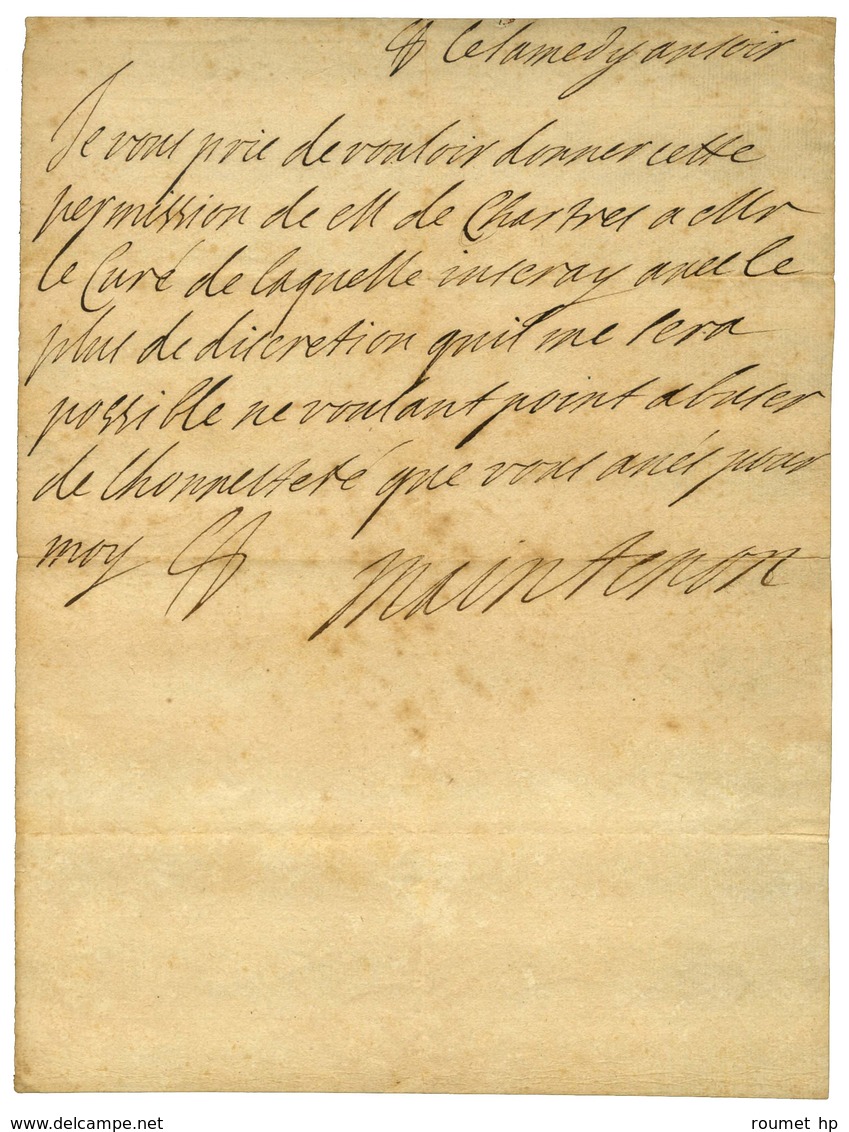 ce samedy au soir
Je vous prie de vouloir donner cette
permission de M de Chartres a Mr
le Curé de laquelle j'useray avec le
plus de discretion quil me sera
possible ne voulant point abuser
de lhonnesteté que vous avés pour
moy
Maintenon
www.delcampe.net
roumet hp